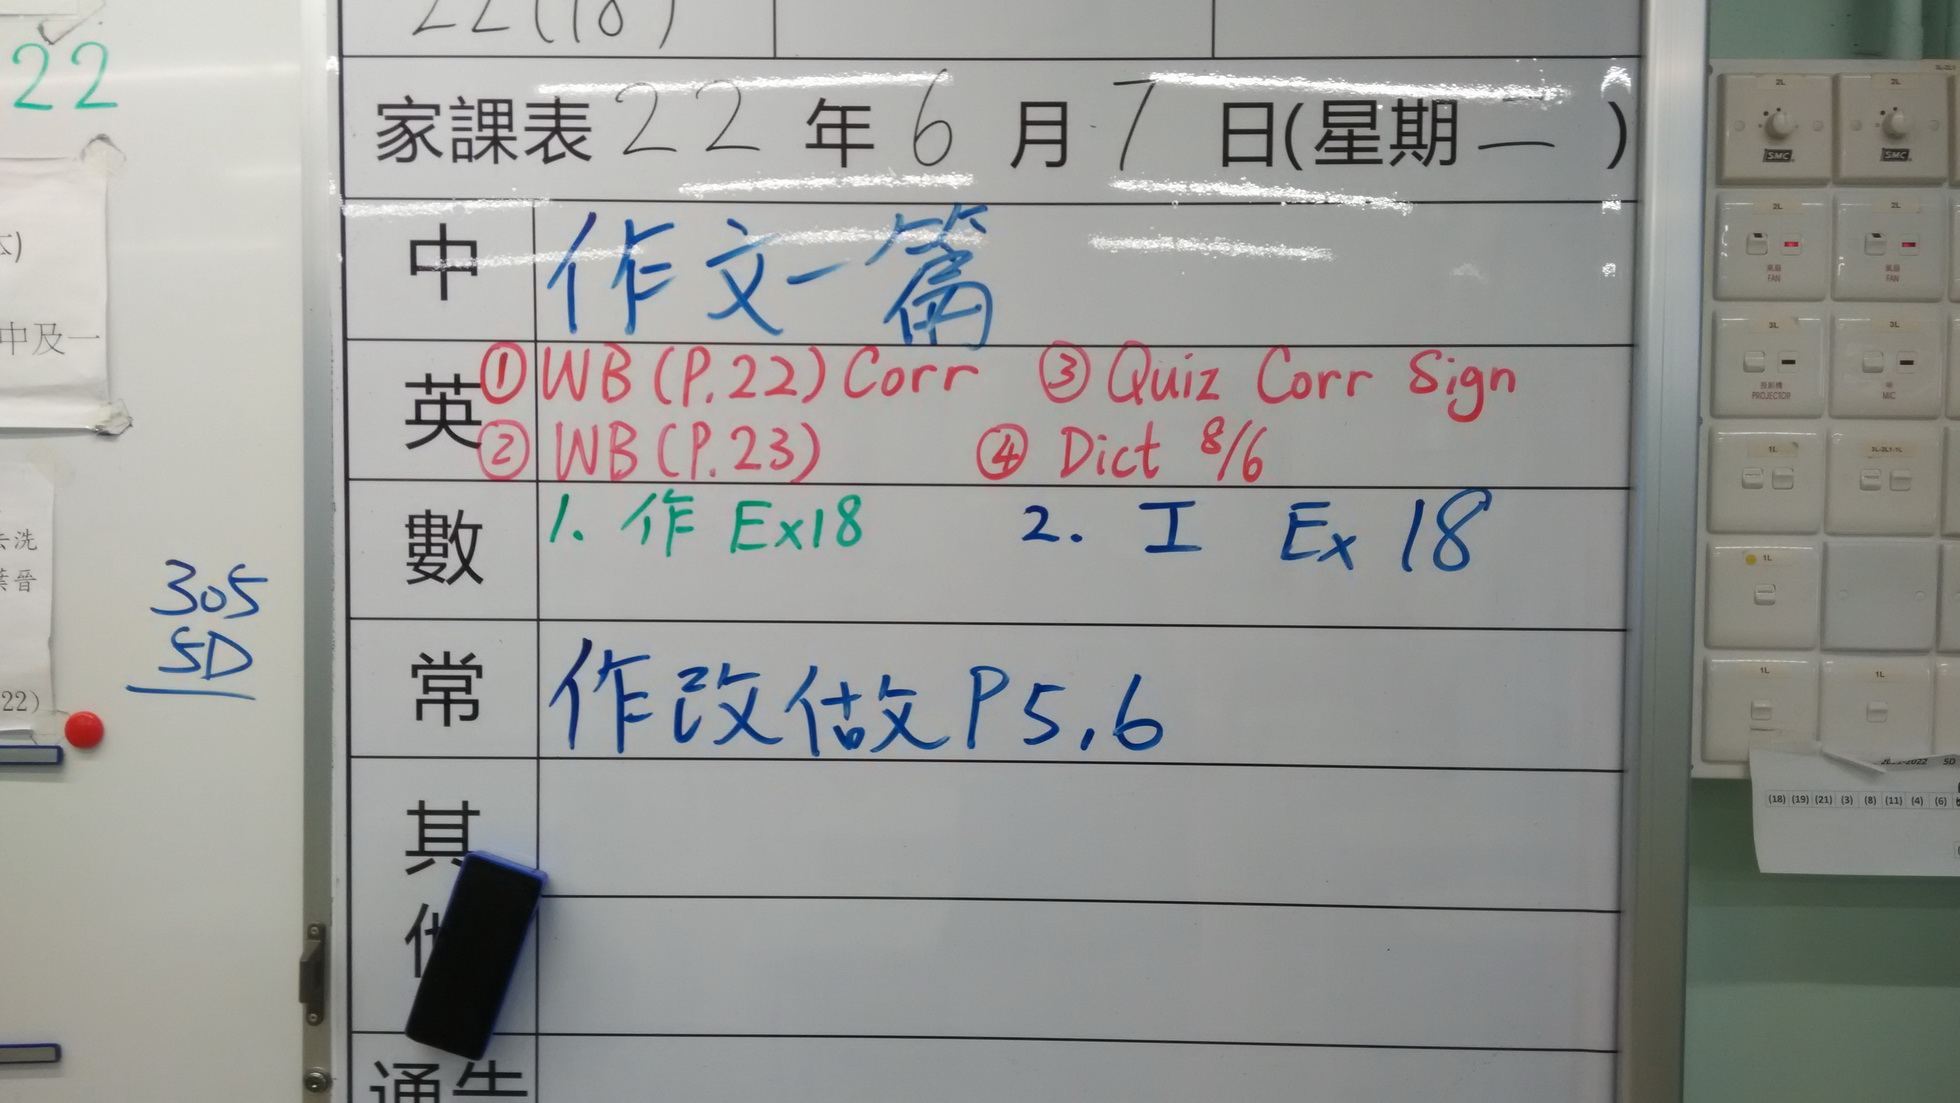 22(18)
22
家課表 22 年 6 月 7 日(星期二)
中 作文一篇
英 ① WB (P.22) Corr ③ Quiz Corr Sign
② WB (P.23) ④ Dict 8/6
數 1. 作 Ex18 2. 工 Ex 18
常 作改做 P5,6
其
通告
中及一
去洗
葉晉
22)
305
5D
2L 2L
SMC SMC
2L 2L
風扇 風扇
FAN FAN
3L 3L
投影機 咪
PROJECTOR MIC
1L
1L
1L 1L
2022 5D
(18) (19) (21) (3) (8) (11) (4) (6)